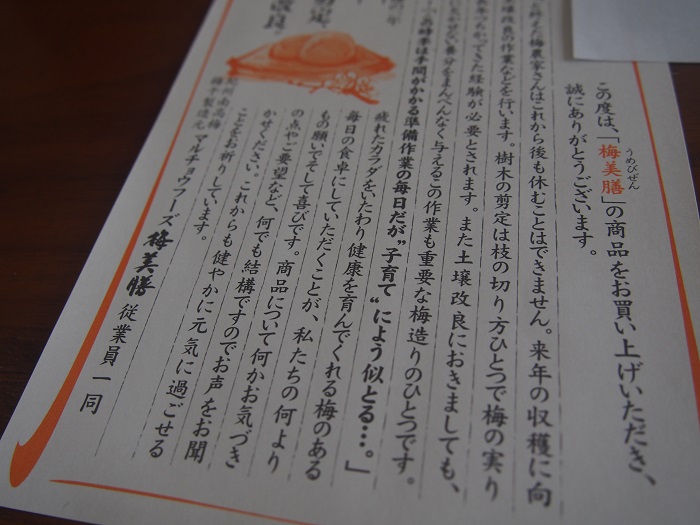 この度は、「梅美膳」の商品をお買い上げいただき、
うめびぜん
誠にありがとうございます。
梅農家さんはこれから後も休むことはできません。来年の収穫に向
改良の作業などを行います。樹木の剪定は枝の切り方ひとつで梅の実り
できた経験が必要とされます。また土壌改良におきましても、
養分をまんべんなく与えるこの作業も重要な梅造りのひとつです。
時季は手間がかかる準備作業の毎日だが〝子育て〟によう似とる…。」
疲れたカラダをいたわり健康を育んでくれる梅のある
毎日の食卓にしていただくことが、私たちの何より
もの願いでそして喜びです。商品について何かお気づき
の点やご要望など、何でも結構ですのでお声をお聞
かせください。これからも健やかに元気に過ごせる
ことをお祈りしています。
州南高梅
梅干製造元 マルチョウフーズ 梅美膳 従業員一同